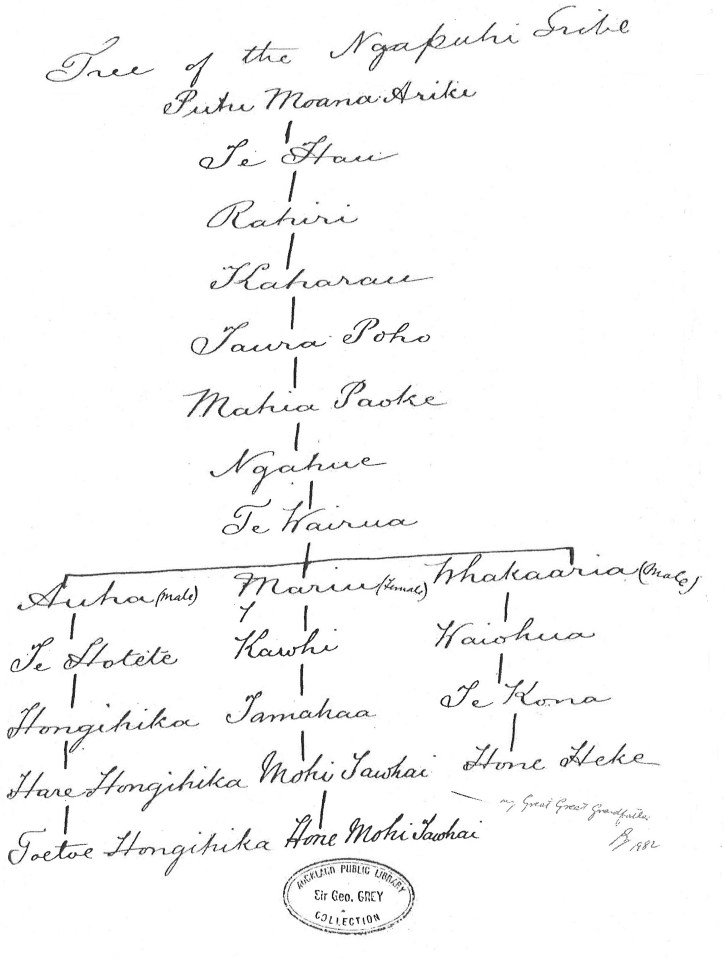 Tree of the Ngapuhi Tribe
Puhu Moana Arike
Te Hau
Rahiri
Kaharau
Taura Poho
Mahia Paoke
Ngahue
Te Wairua
Auha (Male) Mariu (Female) Whakaaria (Male)
Te Hotete Kawhi Waiohua
Hongihika Tamahaa Te Kona
Hare Hongihika Mohi Tawhai Hone Heke
my Great Great Grandfather
1982
Toetoe Hongihika Hone Mohi Tawhai
AUCKLAND PUBLIC LIBRARY
Sir Geo. GREY
COLLECTION